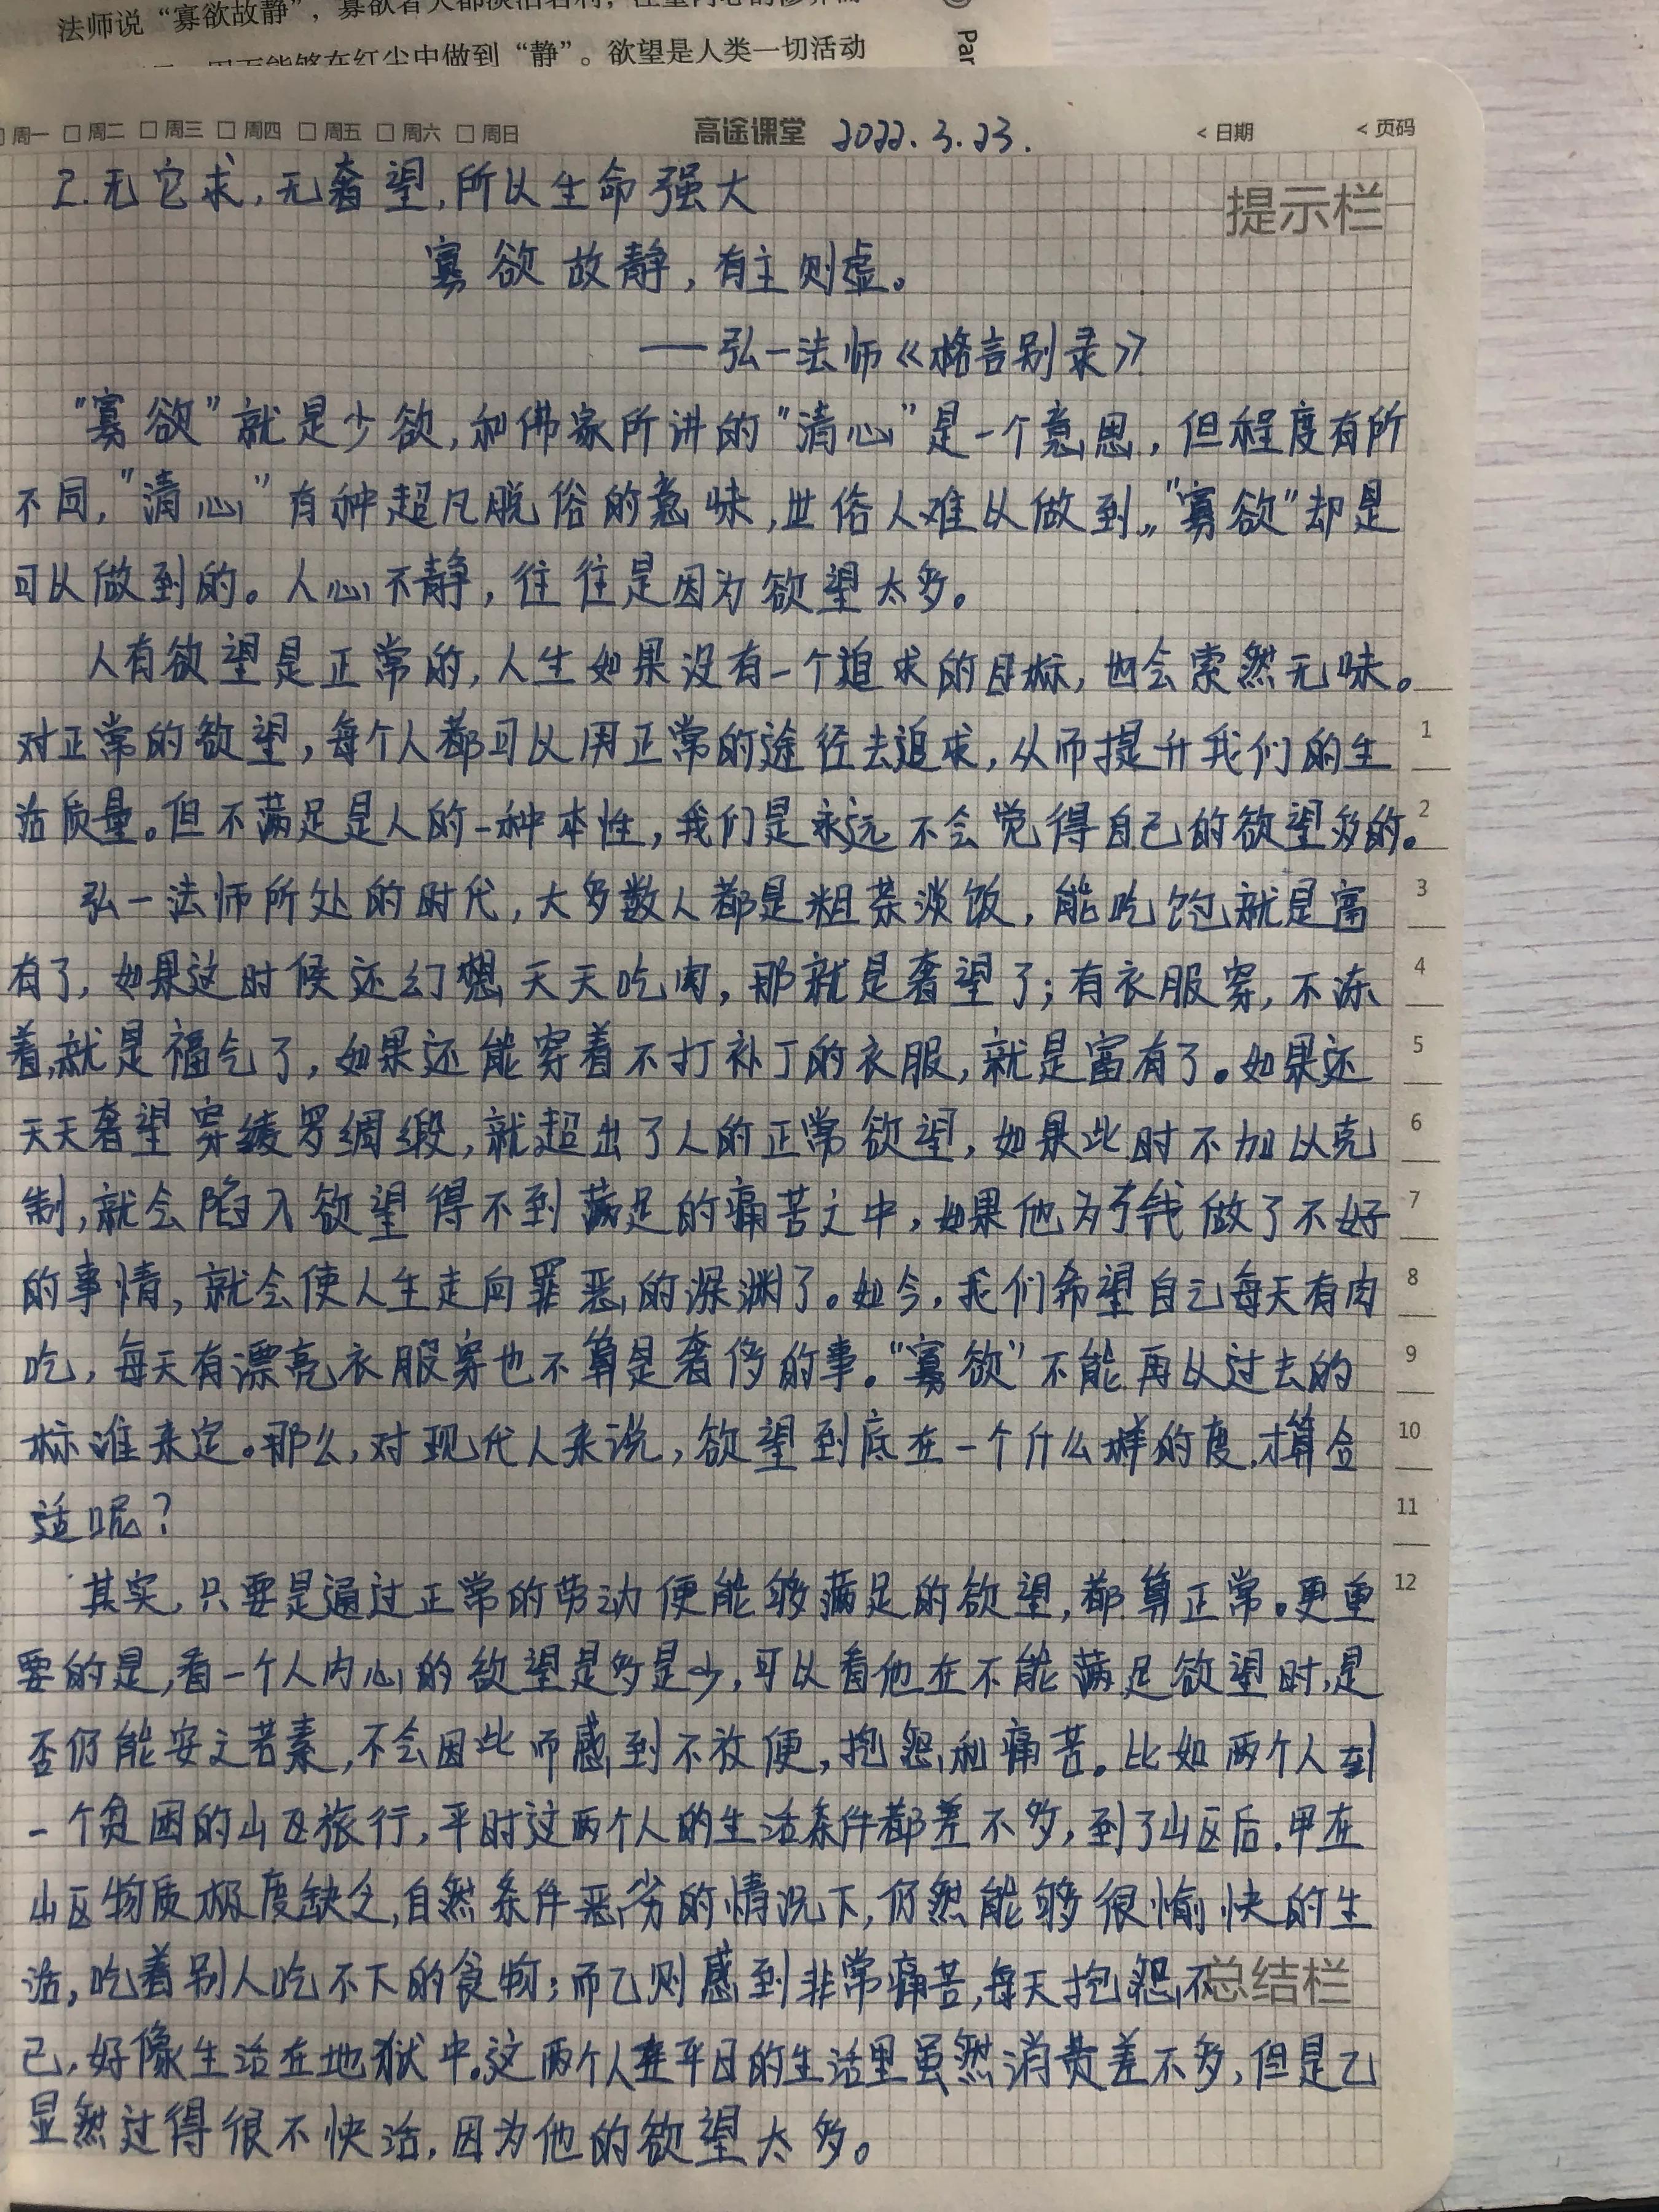 法师说“寡欲故静”，寡欲者大都淡泊名利，注重内心的修养
能够在红尘中做到“静”。欲望是人类一切活动
Par
周一 周二 周三 周四 周五 周六 周日 高途课堂 2022.3.23. <日期 <页码
2.无它求,无奢望,所以生命强大
提示栏
寡欲故静,有主则虚。
——弘一法师《格言别录》
"寡欲"就是少欲,和佛家所讲的"清心"是一个意思,但程度有所
不同,"清心"有种超凡脱俗的意味,世俗人难以做到。"寡欲"却是
可以做到的。人心不静,往往是因为欲望太多。
人有欲望是正常的,人生如果没有一个追求的目标,也会索然无味。
对正常的欲望,每个人都可以用正常的途径去追求,从而提升我们的生
活质量。但不满足是人的一种本性,我们是永远不会觉得自己的欲望多的。
弘一法师所处的时代,大多数人都是粗茶淡饭,能吃饱就是富
有了,如果这时候还幻想天天吃肉,那就是奢望了;有衣服穿,不冻
着,就是福气了,如果还能穿着不打补丁的衣服,就是富有了。如果还
天天奢望穿绫罗绸缎,就超出了人的正常欲望,如果此时不加以克
制,就会陷入欲望得不到满足的痛苦之中,如果他为了钱做了不好
的事情,就会使人生走向罪恶的深渊了。如今,我们希望自己每天有肉
吃,每天有漂亮衣服穿也不算是奢侈的事。"寡欲"不能再以过去的
标准来定。那么,对现代人来说,欲望到底在一个什么样的度,才算合
适呢?
其实,只要是通过正常的劳动便能够满足的欲望,都算正常。更重
要的是,看一个人内心的欲望是多是少,可以看他在不能满足欲望时,是
否仍能安之若素,不会因此而感到不放便,抱怨和痛苦。比如两个人到
一个贫困的山区旅行,平时这两个人的生活条件都差不多,到了山区后,甲在
山区物质极度缺乏,自然条件恶劣的情况下,仍然能够很愉快的生
活,吃着别人吃不下的食物;而乙则感到非常痛苦,每天抱怨不
总结栏
已,好像生活在地狱中。这两个人在平日的生活里虽然消费差不多,但是乙
显然过得很不快活,因为他的欲望太多。
1
2
3
4
5
6
7
8
9
10
11
12